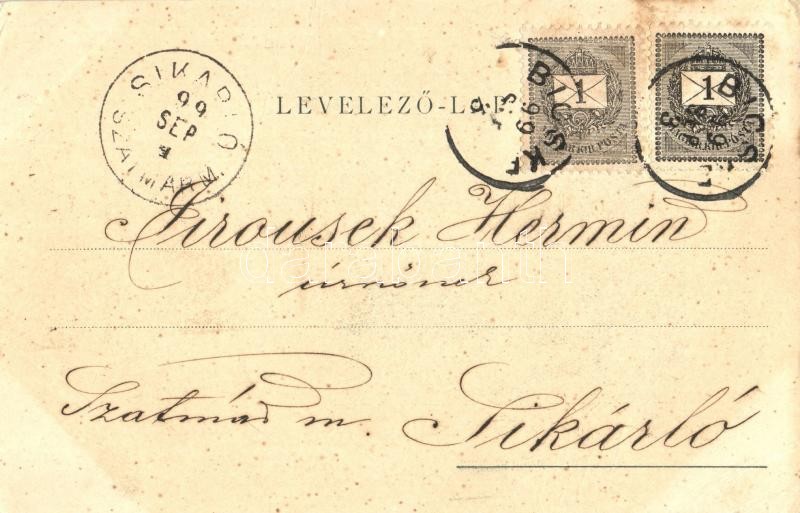 SIKÁRLÓ
99
SEP
1
SZATMÁR M.
LEVELEZŐ-LAP
BICSKE
99
BICSKE
1
MAGYAR KIR. POSTA
1
MAGYAR KIR. POSTA
Jirousek Hermin
úrnőnek
Szatmár m.
Sikárló
darabanth